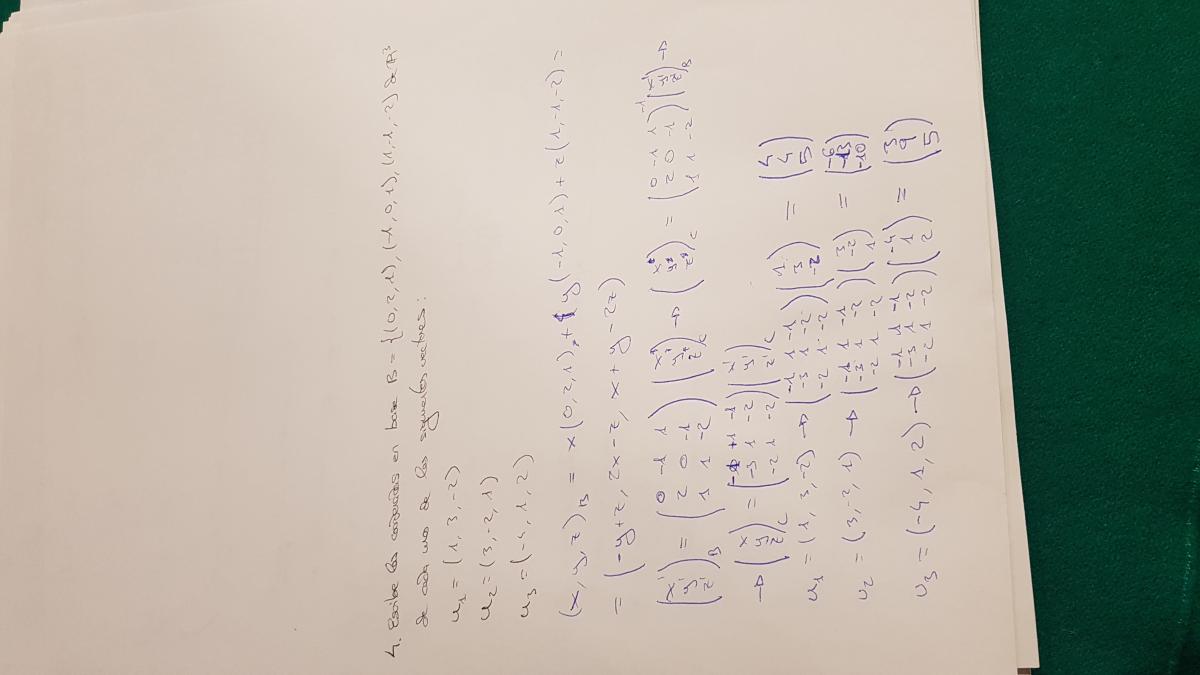 4. Escribe las coordenadas en base B = {(0,2,1),(-1,0,1),(1,-1,-2)} de R³
de cada uno de los siguientes vectores:
u₁ = (1, 3, -2)
u₂ = (3, -2, 1)
u₃ = (-4, 1, 2)
(x, y, z)_B = x(0,2,1) + y(-1,0,1) + z(1,-1,-2) =
= (-y+z, 2x-z, x+y-2z)
(x' y' z')_B = (0 -1 1 / 2 0 -1 / 1 1 -2) (x y z)_C → (x y z)_C = (0 -1 1 / 2 0 -1 / 1 1 -2)⁻¹ (x' y' z')_B →
→ (x y z)_C = (-1 +1 -1 / -3 1 -2 / -2 1 -2) (x' y' z')_C
u₁ = (1, 3, -2) → (-1 1 -1 / -3 1 -2 / -2 1 -2) (1 3 -2) = (4 4 5)
u₂ = (3, -2, 1) → (-1 1 -1 / -3 1 -2 / -2 1 -2) (3 -2 1) = (-6 -13 -10)
u₃ = (-4, 1, 2) → (-1 1 -1 / -3 1 -2 / -2 1 -2) (-4 1 2) = (3 9 5)